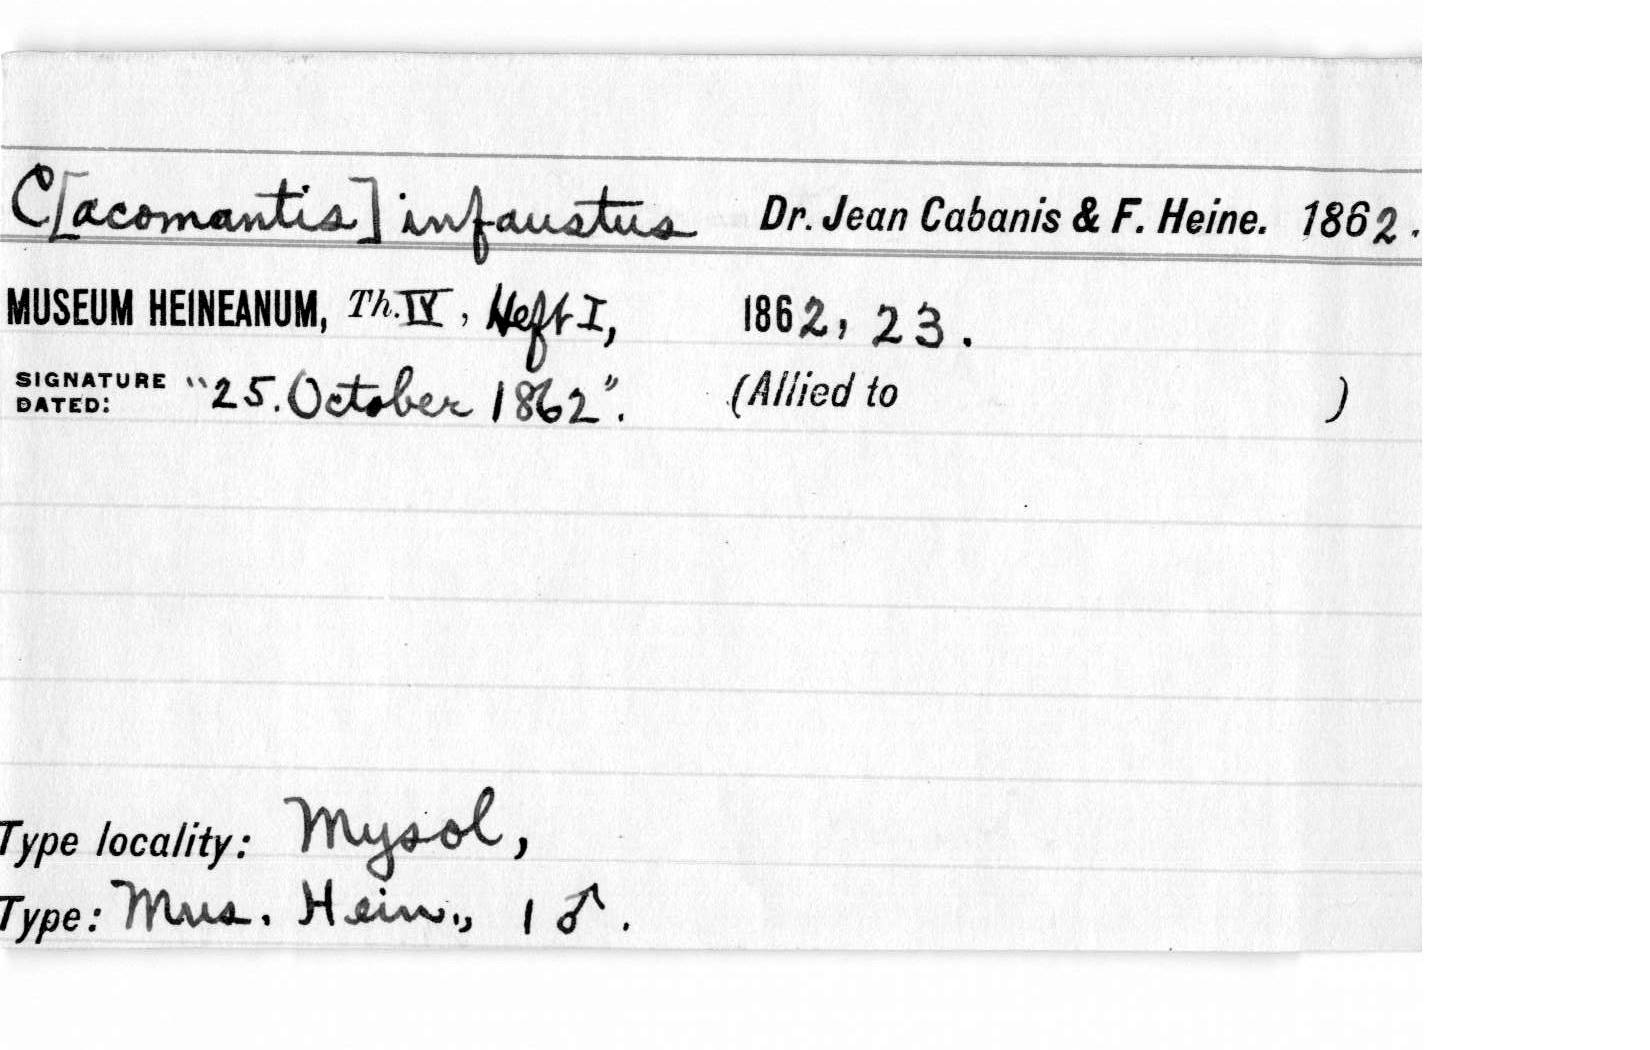 C[acomantis] infaustus Dr. Jean Cabanis & F. Heine. 1862.
MUSEUM HEINEANUM, Th. IV, Heft I, 1862, 23.
SIGNATURE DATED: "25. October 1862". (Allied to )
Type locality: Mysol,
Type: Mus. Hein., 1 ♂.